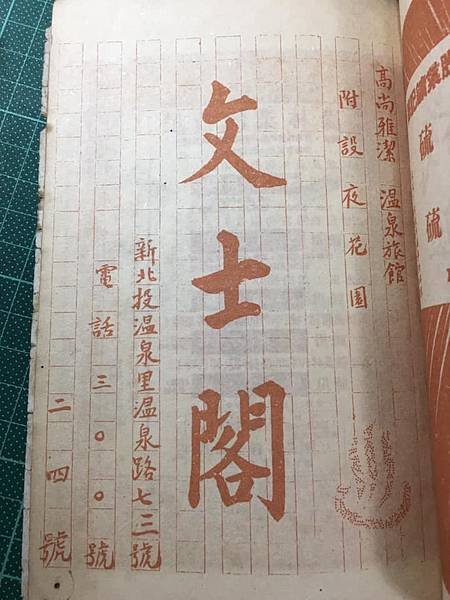 硫 硫
高尚雅潔 温泉旅館
附設夜花園
文士閣
新北投温泉里温泉路七三號
電話三〇〇號
二四號